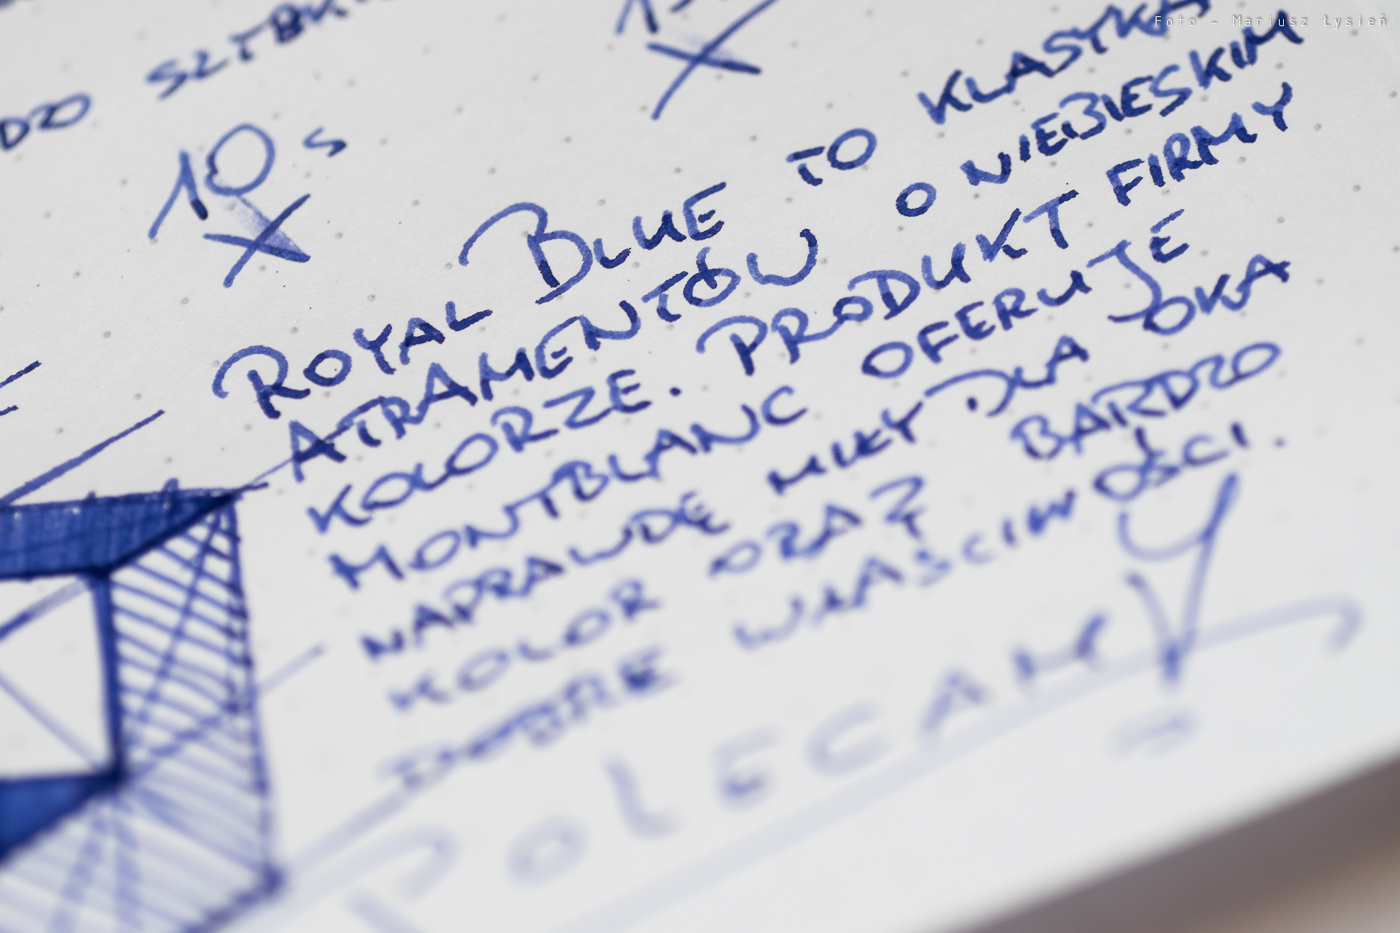 Foto - Mariusz Łysień
10 s
ROYAL BLUE TO KLASYKA
ATRAMENTÓW O NIEBIESKIM
KOLORZE. PRODUKT FIRMY
MONTBLANC OFERUJE
NAPRAWDĘ MIŁY DLA OKA
KOLOR ORAZ BARDZO
DOBRE WŁAŚCIWOŚCI.
POLECAM!